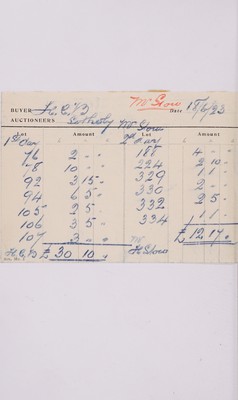 Mr Stow
BUYER H.C.B Date 18/6/23
AUCTIONEERS Sotheby Mr Stow
Lot Amount Lot Amount
1st Day 2nd Day
76 2 - - 188 4 - -
78 10 - - 224 2 10 -
92 3 15 - 329 1 1 -
94 6 5 - 330 2 - -
105 2 5 - 332 2 5 -
106 3 5 - 334 1 1 -
107 3 - - £ 12 17 -
H.C.B £ 30 10 - Mr Stow